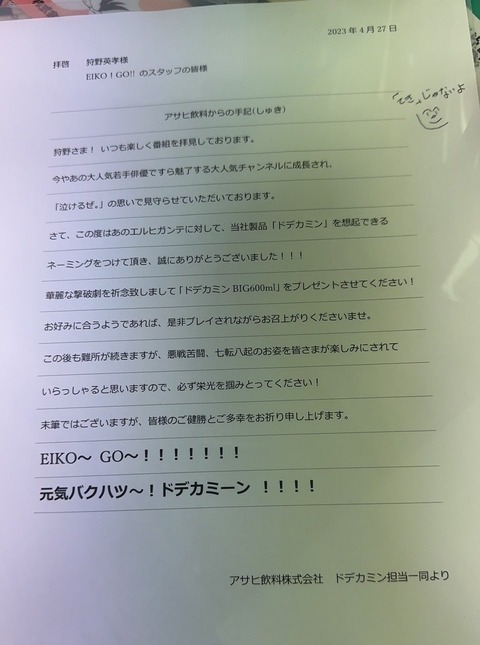 2023年4月27日
拝啓 狩野英孝様
EIKO！GO!! のスタッフの皆様
アサヒ飲料からの手記(しゅき)
「てき」じゃないよ
狩野さま！ いつも楽しく番組を拝見しております。
今やあの大人気若手俳優ですら魅了する大人気チャンネルに成長され、
「泣けるぜ。」の思いで見守らせていただいております。
さて、この度はあのエルヒガンテに対して、当社製品「ドデカミン」を想起できる
ネーミングをつけて頂き、誠にありがとうございました！！！
華麗な撃破劇を祈念致しまして「ドデカミン BIG600ml」をプレゼントさせてください！
お好みに合うようであれば、是非プレイされながらお召上がりくださいませ。
この後も難所が続きますが、悪戦苦闘、七転八起のお姿を皆さまが楽しみにされて
いらっしゃると思いますので、必ず栄光を掴みとってください！
末筆ではございますが、皆様のご健勝とご多幸をお祈り申し上げます。
EIKO～ GO～！！！！！！！
元気バクハツ～！ドデカミーン ！！！！
アサヒ飲料株式会社 ドデカミン担当一同より